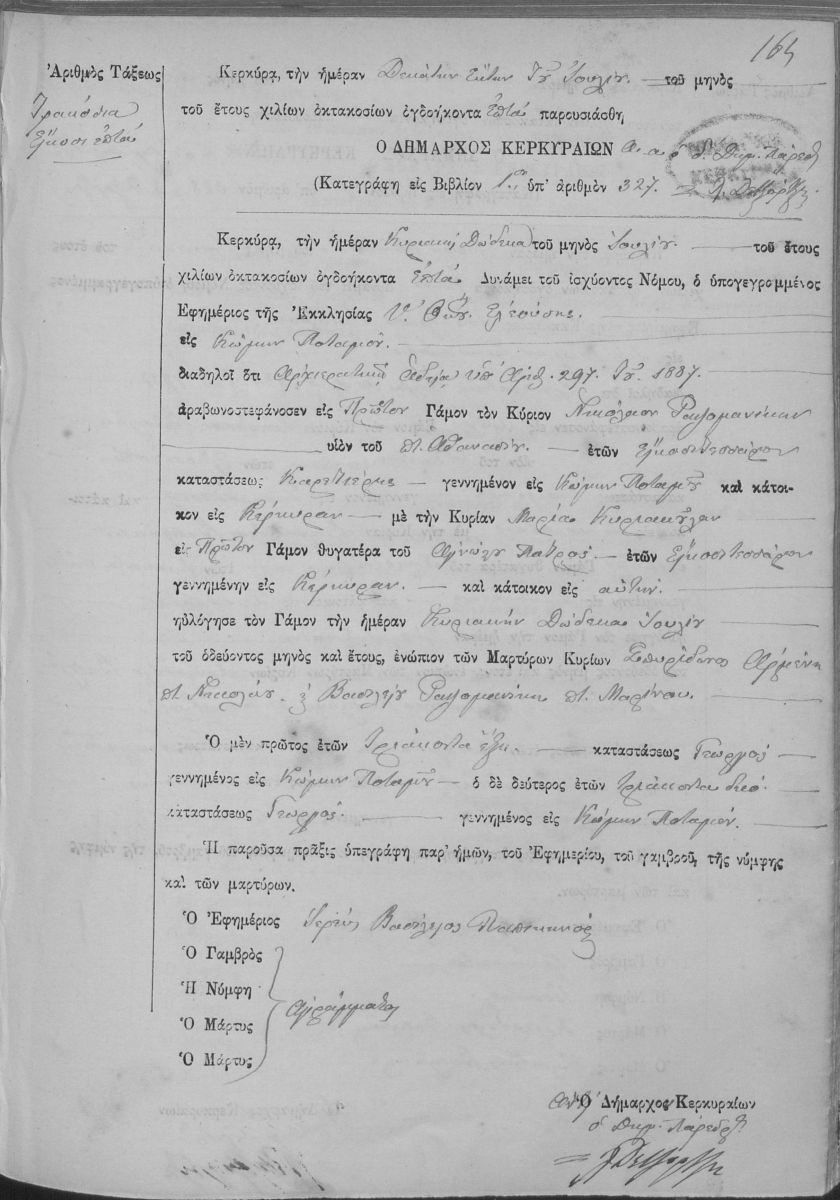 164
Ἀριθμὸς Τάξεως
Τριακόσια
εἴκοσι ἑπτά
Κερκύρᾳ, τὴν ἡμέραν Δεκάτην Ἕκτην Ἰουλίου τοῦ μηνὸς
τοῦ ἔτους χιλίων ὀκτακοσίων ὀγδοήκοντα Ἑπτά παρουσιάσθη
Ο ΔΗΜΑΡΧΟΣ ΚΕΡΚΥΡΑΙΩΝ
(Κατεγράφη εἰς Βιβλίον ὑπ' ἀριθμὸν 327.
Κερκύρᾳ, τὴν ἡμέραν Κυριακή Δώδεκα τοῦ μηνὸς Ἰουλίου τοῦ ἔτους
χιλίων ὀκτακοσίων ὀγδοήκοντα Ἑπτά Δυνάμει τοῦ ἰσχύοντος Νόμου, ὁ ὑπογεγραμμένος
Ἐφημέριος τῆς Ἐκκλησίας Ἐλεούσης.
εἰς Κώμην Ποταμοῦ.
διαδηλοῖ ὅτι Ἀρχιερατικῇ ἀδείᾳ ὑπ' Ἀριθ. 297. 1887.
ἀραβωνοστεφάνοσεν εἰς Πρῶτον Γάμον τὸν Κύριον Νικόλαον
υἱὸν τοῦ π. Ἀθανασίου. ἐτῶν
καταστάσεως γεννημένον εἰς Κώμην Ποταμοῦ καὶ κάτοι-
κον εἰς Κέρκυραν μὲ τὴν Κυρίαν Μαρία
εἰς Πρῶτον Γάμον θυγατέρα τοῦ Ἀγνώστου Πατρός. ἐτῶν
γεννημένην εἰς Κέρκυραν. καὶ κάτοικον εἰς αὐτήν.
ηὐλόγησε τὸν Γάμον τὴν ἡμέραν Κυριακήν Δώδεκα Ἰουλίου
τοῦ ὁδεύοντος μηνὸς καὶ ἔτους, ἐνώπιον τῶν Μαρτύρων Κυρίων Σπυρίδωνα
π. Νικολάου. Βασιλείου π. Μαρίνου.
Ὁ μὲν πρῶτος ἐτῶν Τριάκοντα ἕξη. καταστάσεως Γεωργός
γεννημένος εἰς Κώμην Ποταμοῦ ὁ δὲ δεύτερος ἐτῶν τριάκοντα δύο.
καταστάσεως Γεωργός. γεννημένος εἰς Κώμην Ποταμοῦ.
Ἡ παροῦσα πρᾶξις ὑπεγράφη παρ' ἡμῶν, τοῦ Ἐφημερίου, τοῦ γαμβροῦ, τῆς νύμφης
καὶ τῶν μαρτύρων.
Ὁ Ἐφημέριος Ἱερεὺς Βασίλειος
Ὁ Γαμβρὸς
Ἡ Νύμφη
Ἀγράμματοι
Ὁ Μάρτυς
Ὁ Μάρτυς
Ὁ Δήμαρχος Κερκυραίων
ὁ Δημ. Πάρεδρος